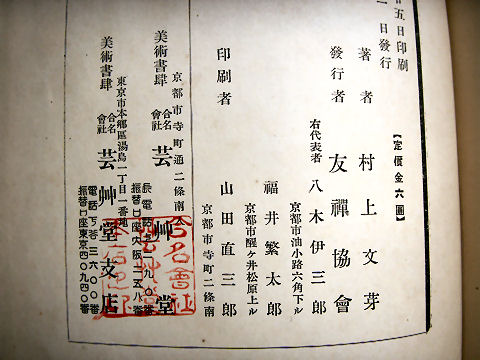 五日印刷
一日發行
【定價金六圓】
著者 村上文芽
發行者 友禪協會
右代表者 八木伊三郎
京都市油小路六角下ル
福井繁太郎
京都市醒ヶ井松原上ル
印刷者 山田直三郎
京都市寺町二條南
京都市寺町通二條南入
美術書肆 合名會社 芸艸堂
長電話
振替口座大阪三五八番
東京市本鄕區湯島一丁目一番地
美術書肆 合名會社 芸艸堂支店
電話下谷三六〇〇番
振替口座東京四〇九四番
合名會社